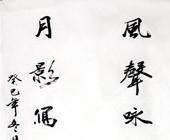 風聲咏
月影寫
癸巳年冬月